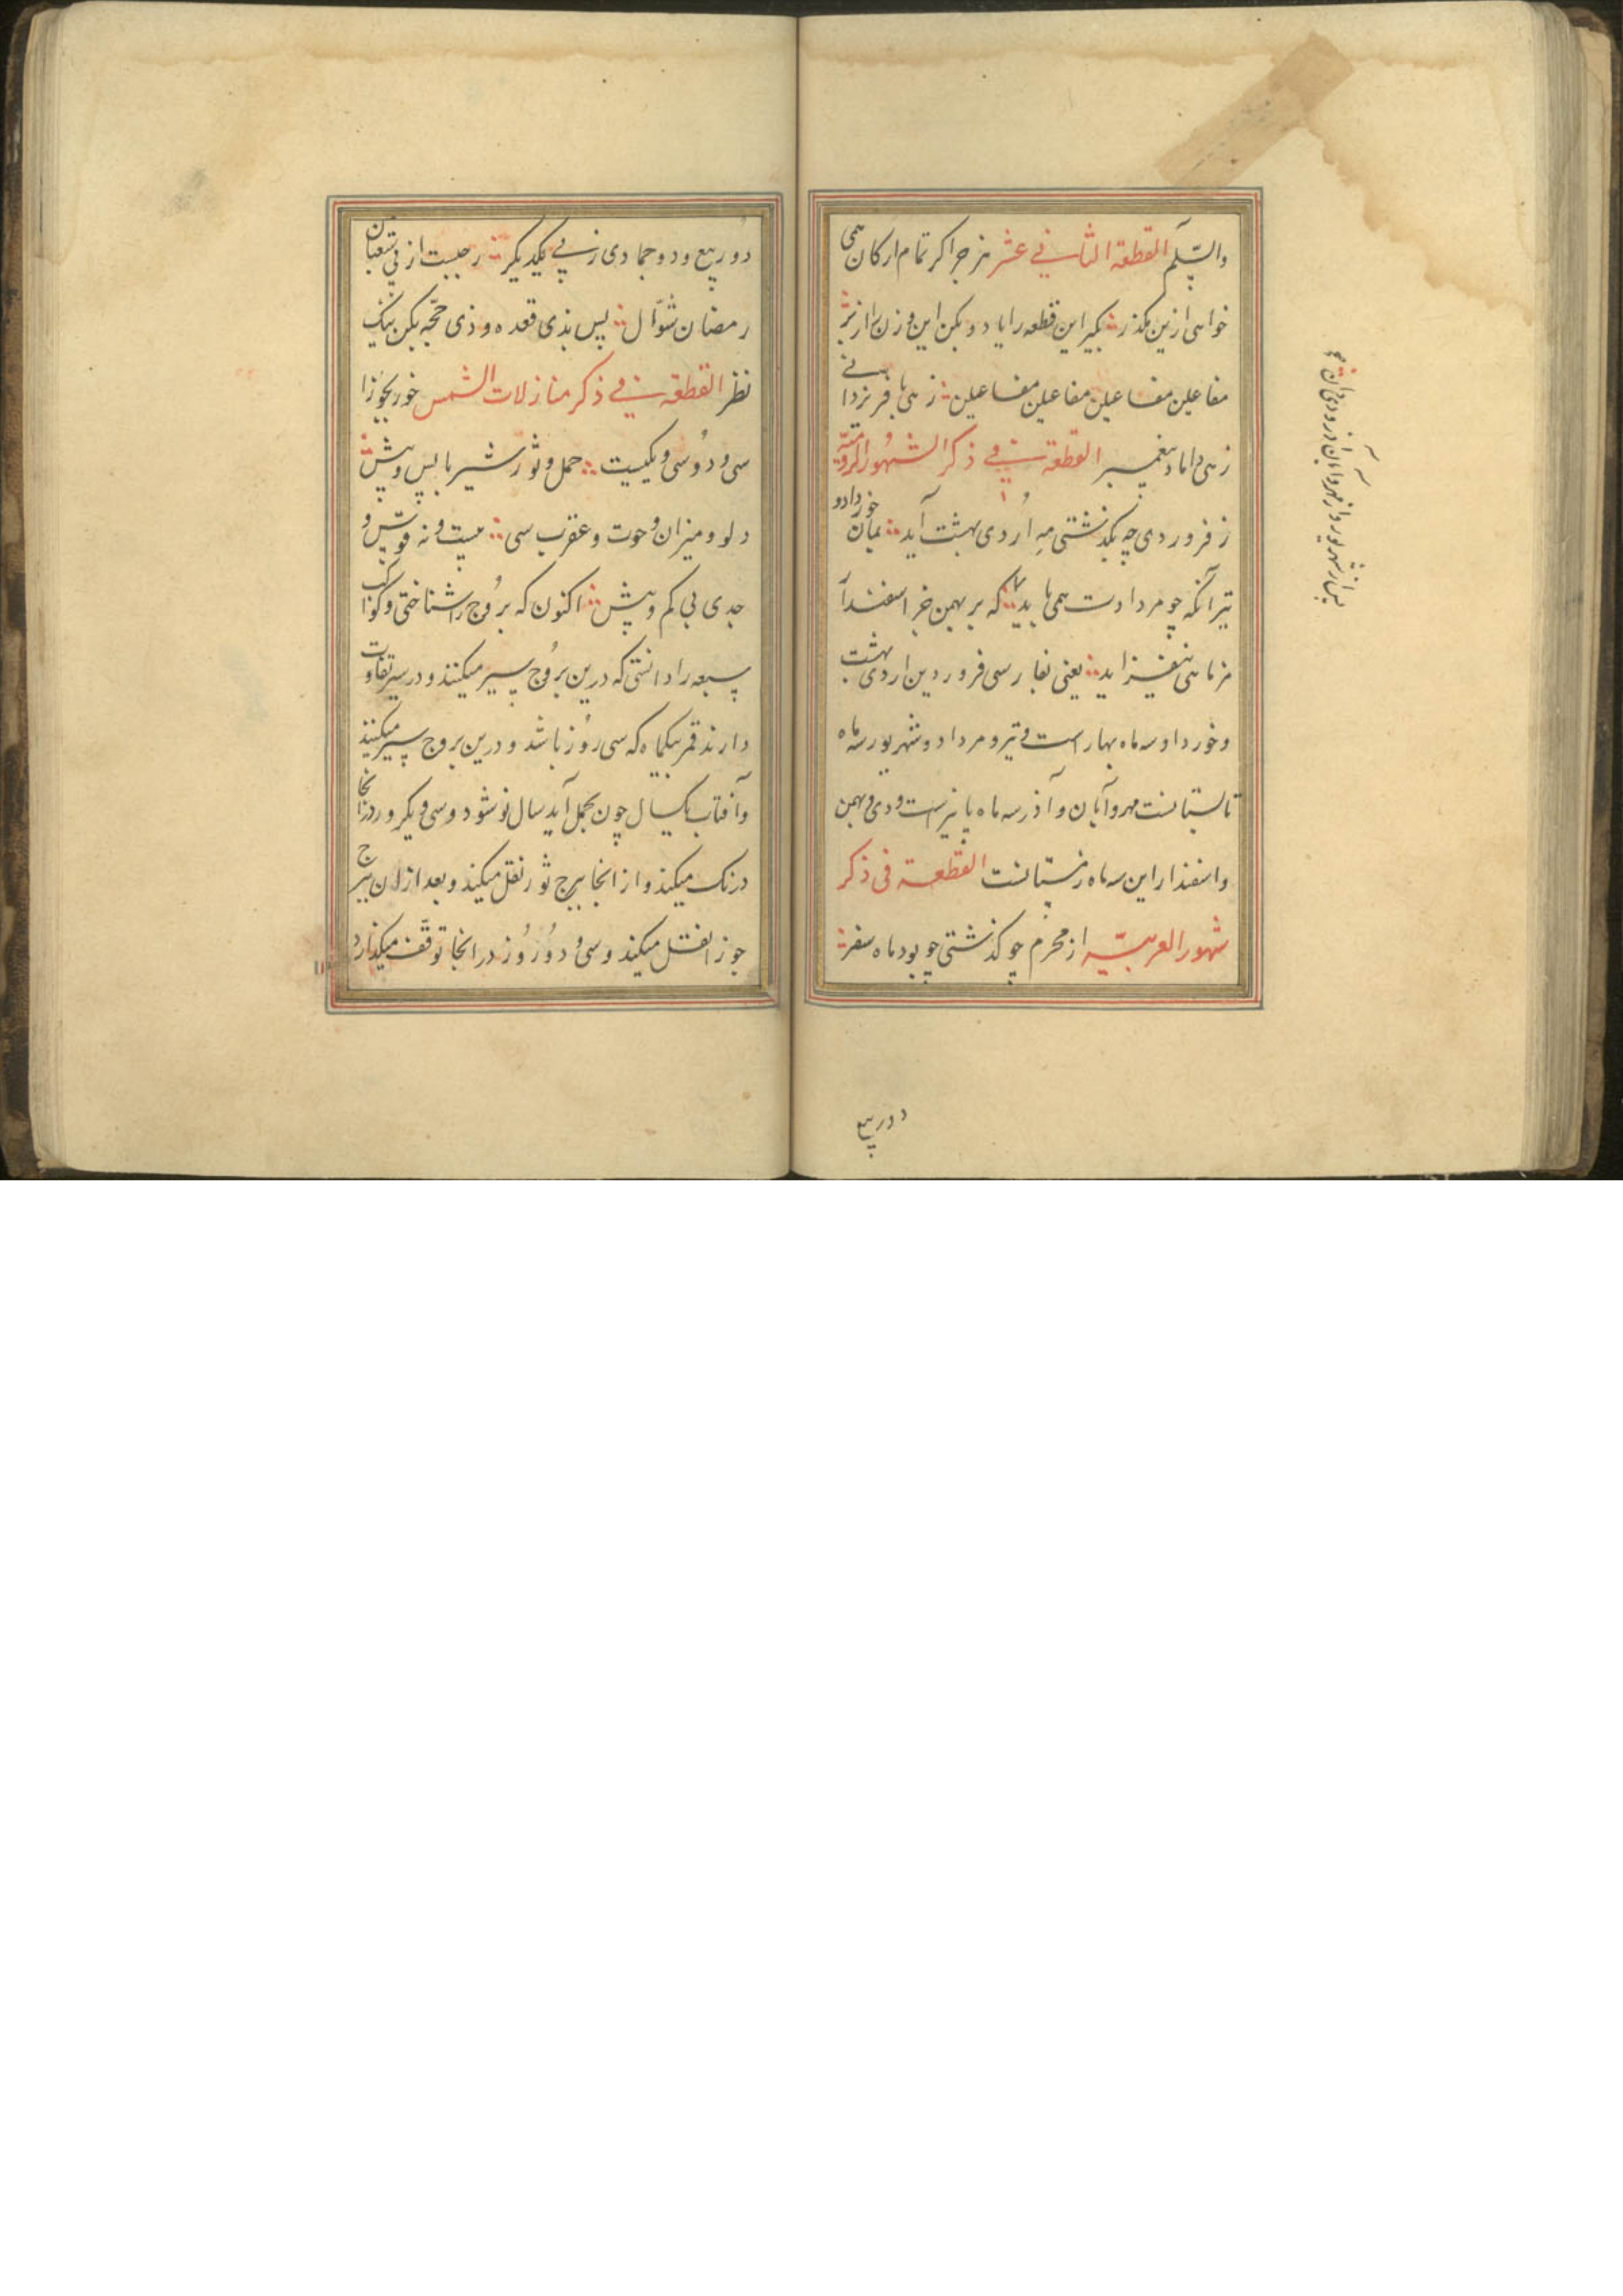 والسّلم القطعة الثانی فی عشر هزجرا کر تمام ارکان همی
خواهی ازین مگذر بگیر این قطعه را یاد و بکن این وزن را از بر
مفاعلین مفاعیلن مفاعلین مفاعلین زهی با فر یزدانی
زهی داماد پیغمبر القطعه فی ذکر الشهور الرومیّة
ز فروردی چه بگذشتی مه اردی بهشت آید بمان خرداد و
تیر آنکه چو مردادت همی باید که بر بهمن جز اسفندار
مز ماهی نیفزاید یعنی بفارسی فروردین اردی بهشت
و خورداد سه ماه بهار است و تیر و مرداد و شهریور سه ماه
تابستانست مهر و آبان و آذر سه ماه پاییزست و دی و بهمن
و اسفندار این سه ماه زمستانست القطعة فی ذکر
شهور العربیّه از محرّم چو گذشتی چو بود ماه سفر
دو ربیع
پس از شهریور و از مهر و ابان آذر و دی دان
دو ربیع و دو جمادی ز پی یکدیگر رجبست از پی شعبان
رمضان شوّال پس بذی قعده و ذی حجّه بکن نیک
نظر القطعه فی ذکر منازلات الشمس خور بجوزا
سی و دو سی و یکیست حمل و ثور شیر با پس و پیش
دلو و میزان و حوت و عقرب سی بیست و نه قوس و
جدی بی کم و بیش اکنون که بروج را شناختی و کواکب
سبعه را دانستی که درین بروج سیر میکنند و در سیر تفاوت
دارند قمر بیکماه که سی روز باشد و درین بروج سیر میکنند
و آفتاب بیکسال چون بحمل آید سال نو شود و سی و یکروز در انجا
درنک میکند و از انجا ببرج ثور نقل میکند و بعد از ان ببرج
جوزا نقل میکند و سی و دو روز در انجا توقّف میکند ارد